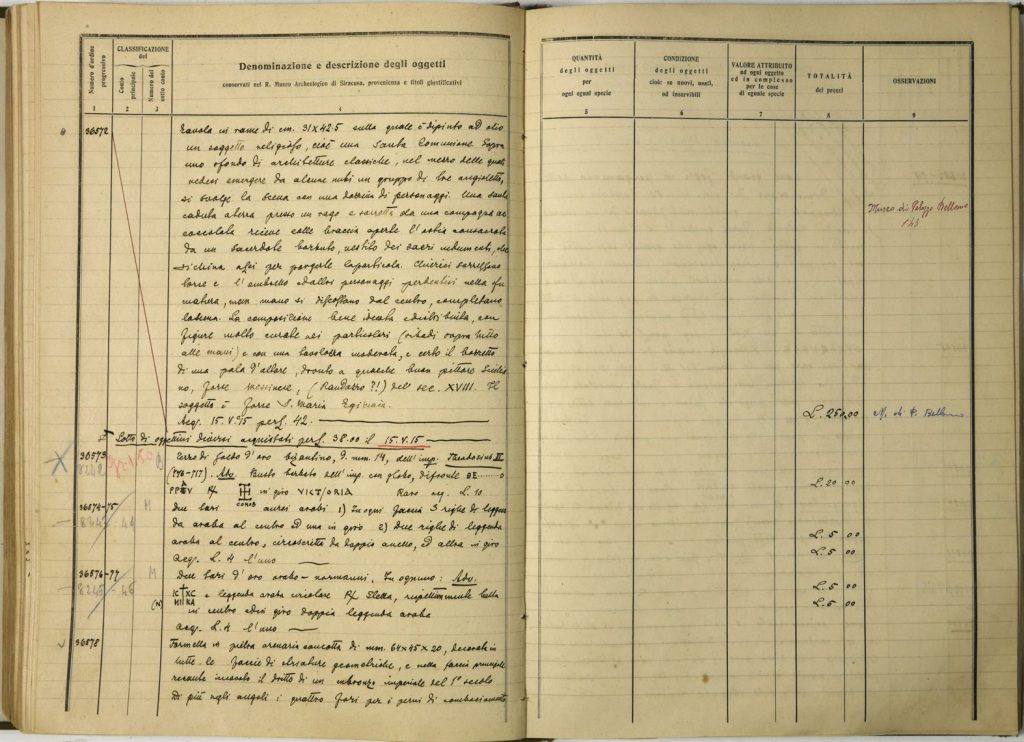 Numero d'ordine progressivo
CLASSIFICAZIONE del
Conto principale
Numero del sotto conto
Denominazione e descrizione degli oggetti
conservati nel R. Museo Archeologico di Siracusa, provenienza e titoli giustificativi
1 2 3 4
36572 Tavola in rame di cm. 31 x 42.5 sulla quale è dipinto ad olio
un soggetto religioso, cioè una Santa Comunione. Sopra
uno sfondo di architetture classiche, nel mezzo delle quali
vedesi emergere da alcune nubi un gruppo di tre angioletti,
si svolge la scena con una dozzina di personaggi. Una santa
caduta a terra presso un rago e sorretta da una compagna ac
coccolata riceve colle braccia aperte l'ostia consacrata
da un sacerdote barbuto, vestito dei sacri indumenti, che
si china assi per porgerle la particola. Chierici sorreggono
torce e l'ombrello ed altri personaggi
man mano si discostano dal centro, completano
la scena. La composizione bene ideata e distribuita, con
figure molto curate nei particolari (si badi sopra tutto
alle mani) e con una tavolozza moderata, è certo il bozzetto
di una pala d'altare, dovuto a qualche buon pittore Sicilia
no, forse messinese, (Randazzo?!) del sec. XVIII. Il
soggetto è forse S. Maria Egiziaca.
Acq. 15.V.15 per L. 42.
Lotto di oggettini diversi acquistati per L. 38.00 il 15.V.15
36573 Terzo di soldo d'oro bizantino, D. mm. 14, dell'imp. Theodosius III
(716-717). Adv. Busto barbato dell'imp. con globo, di fronte
in giro VICT/ORIA Raro acq. L. 10
CONOB
36574-75 M Due tarì aurei arabi 1) In ogni faccia 3 righe di leggen
da araba al centro ed una in giro 2) Due righe di leggenda
araba al centro, circoscritta da doppio anello, ed altra in giro
Acq. L. 4 l'uno
36576-77 M Due tarì d'oro arabo-normanni. In ognuno: Adv.
IC XC e leggenda araba circolare R/ Stella, rispettivamente bulla
NI KA in centro ed in giro doppia leggenda araba
acq. L. 4 l'uno
36578 Formella in pietra arenaria concotta di mm. 64x45x20, decorata in
tutte le faccie di striature geometriche, e nella faccia principale
recante incavato il dritto di un bronzo imperiale del 1° secolo
Di più negli angoli i quattro fori per i perni di combaciamento
QUANTITÀ
degli oggetti
per
ogni egual specie
5
CONDIZIONE
degli oggetti
cioè: se nuovi, usati,
od inservibili
6
VALORE ATTRIBUITO
ad ogni oggetto
ed in complesso
per le cose
di eguale specie
7
TOTALITÀ
dei prezzi
8
OSSERVAZIONI
9
Museo di Palazzo Bellomo
L. 250,00 M. di P. Bellomo
L. 20 00
L. 5 00
L. 5 00
L. 5 00
L. 5 00